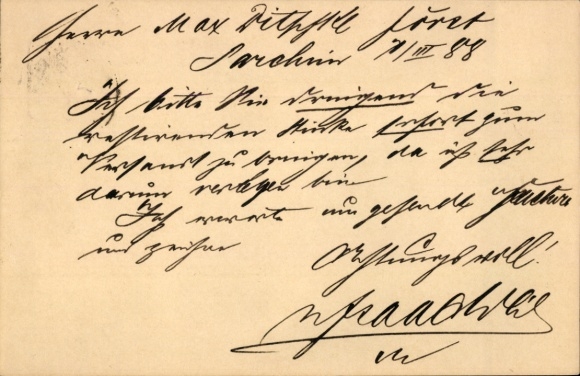 Herrn Max Ditschke Forst
Parchim 7/III 88
Ich bitte Sie dringend die
restirenden Stücke sofort zum
Versandt zu bringen, da ich sehr
darum verlegen bin
Ich erwarte umgehendst Factura
und zeichne
Achtungsvoll!